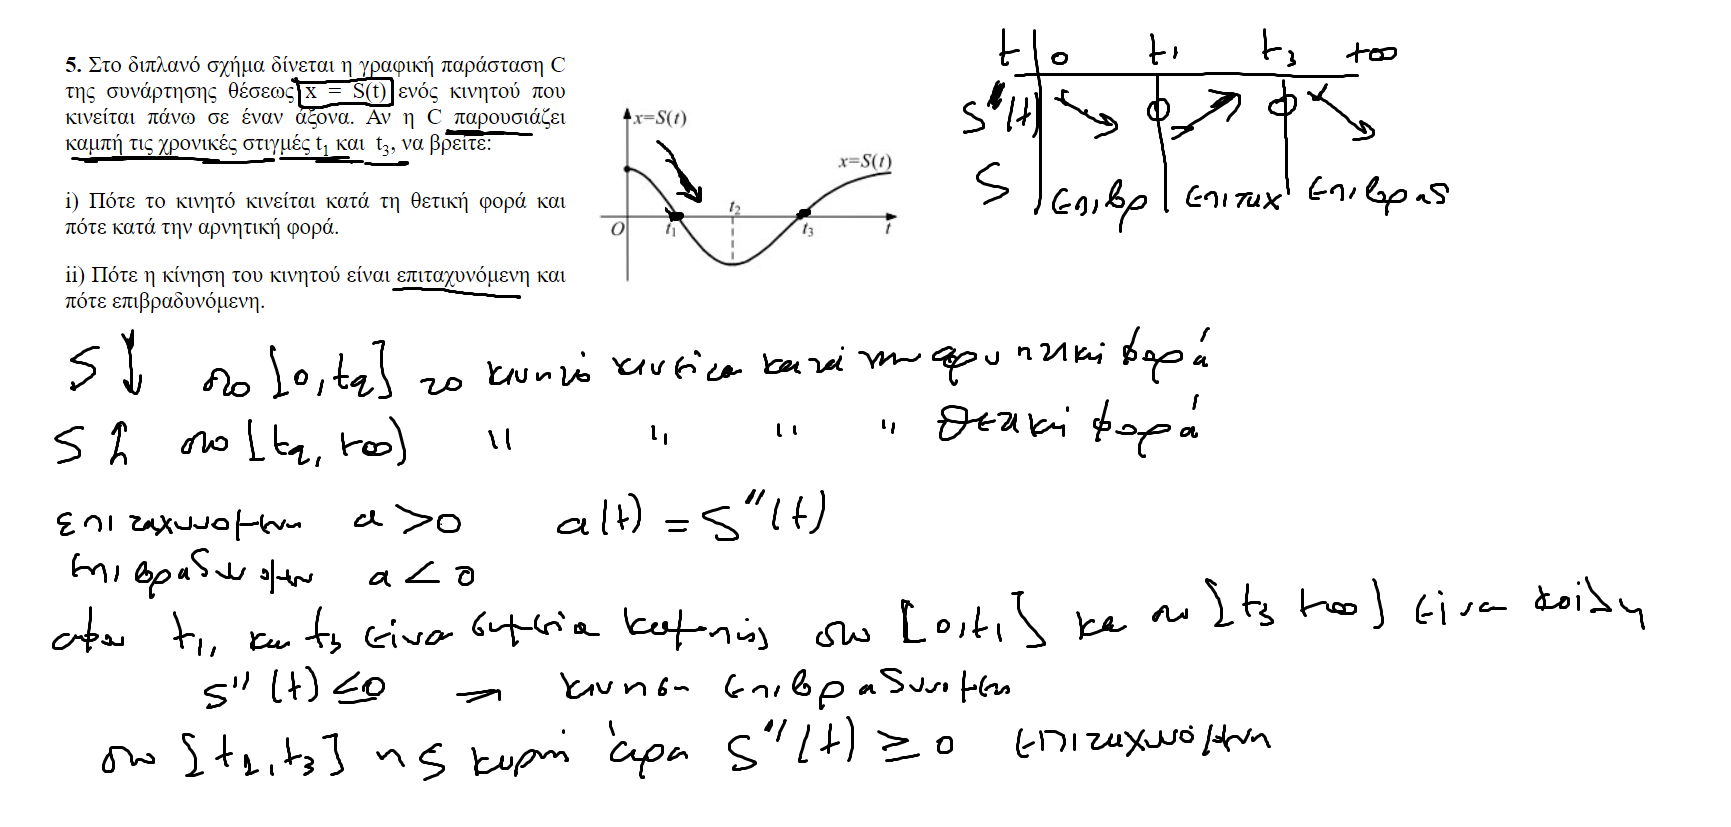 5. Στο διπλανό σχήμα δίνεται η γραφική παράσταση C
της συνάρτησης θέσεως x = S(t) ενός κινητού που
κινείται πάνω σε έναν άξονα. Αν η C παρουσιάζει
καμπή τις χρονικές στιγμές t₁ και t₃, να βρείτε:
i) Πότε το κινητό κινείται κατά τη θετική φορά και
πότε κατά την αρνητική φορά.
ii) Πότε η κίνηση του κινητού είναι επιταχυνόμενη και
πότε επιβραδυνόμενη.
x=S(t)
x=S(t)
t₂
O t₁ t₃ t
t 0 t₁ t₃ +∞
S''(t) 0 0
S επιβρ επιταχ επιβραδ
S ↓ στο [0, t₂] το κινητό κινείται κατά την αρνητική φορά
S ↑ στο [t₂, +∞) '' '' '' '' θετική φορά
επιταχυνομενη a > 0 a(t) = S''(t)
επιβραδυνομεν a < 0
αφου t₁, και t₃ είναι σημεία καμπής στο [0, t₁] και στο [t₃ +∞) είναι κοίλη
S''(t) ≤ 0 → κινηση επιβραδυνομενη
στο [t₂, t₃] η S κυρτή άρα S''(t) ≥ 0 επιταχυνόμενη